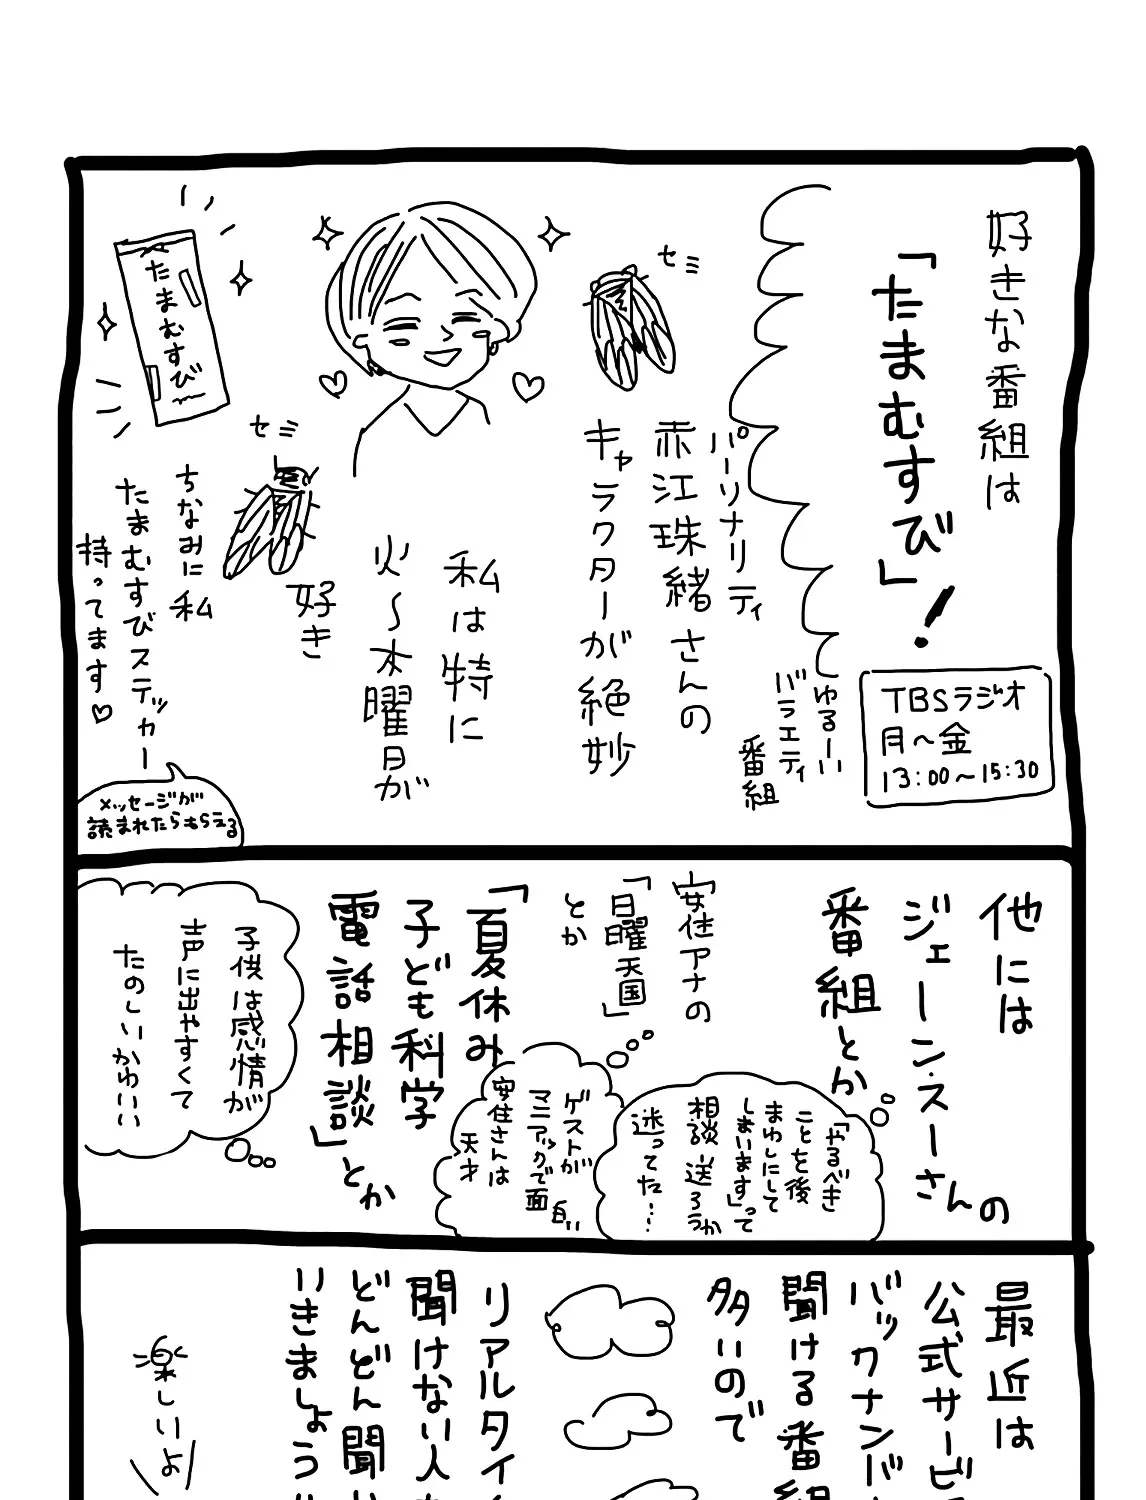 好きな番組は
「たまむすび」!
TBSラジオ
月〜金
13:00〜15:30
ゆるーい
バラエティ
番組
パーソナリティ
赤江珠緒さんの
キャラクターが絶妙
セミ
私は特に
火〜木曜日が
好き
セミ
たまむすび
ちなみに私
たまむすびステッカー
持ってます♡
メッセージが
読まれたらもらえる
他には
ジェーン・スーさんの
番組とか
「やるべき
ことを後
まわしにして
しまいます」って
相談送ろうか
迷ってた…
安住アナの
「日曜天国」
とか
ゲストが
マニアックで面白い
安住さんは
天才
「夏休み
子ども科学
電話相談」とか
子供は感情が
声に出やすくて
たのしいかわいい
最近は
公式サービ
バックナンバ
聞ける番組
多いので
リアルタイ
聞けない人
どんどん聞い
いきましょう
楽しいよ